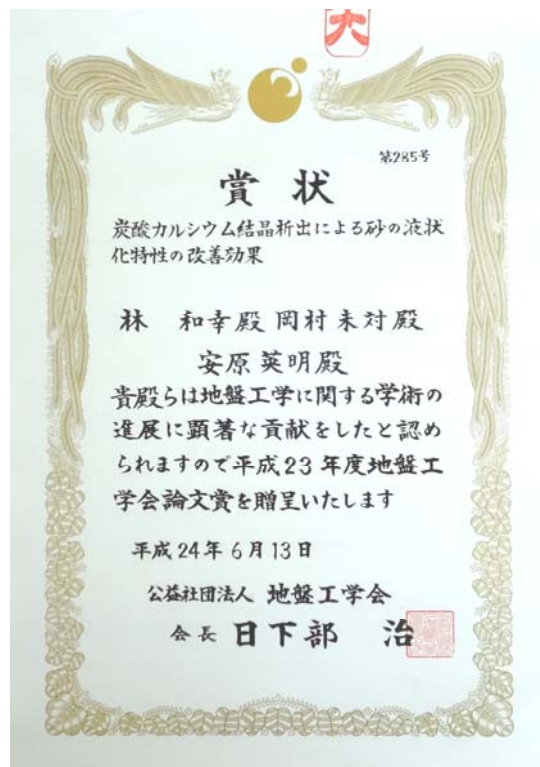 大
第285号
賞状
炭酸カルシウム結晶析出による砂の液状
化特性の改善効果
林 和幸殿 岡村未対殿
安原英明殿
貴殿らは地盤工学に関する学術の
進展に顕著な貢献をしたと認め
られますので平成23年度地盤工
学会論文賞を贈呈いたします
平成24年6月13日
公益社団法人 地盤工学会
会長 日下部 治